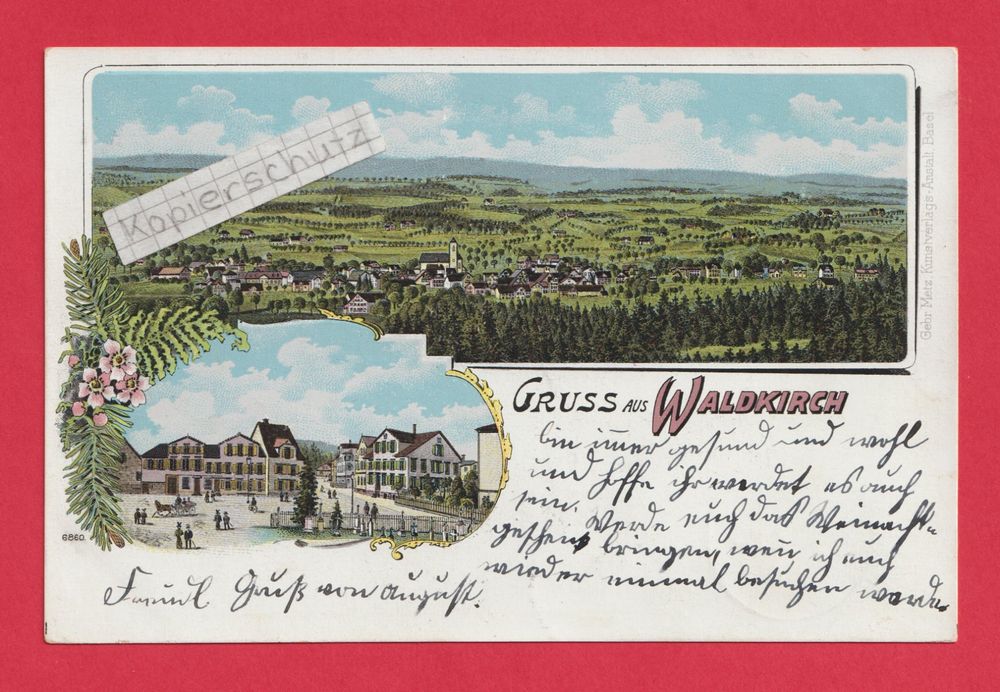 Kopierschutz
Gebr. Metz, Kunstverlags-Anstalt, Basel
GRUSS AUS WALDKIRCH
bin imer gesund und wohl
und hoffe ihr werdet es auch
sein.
geschenk Werde euch das Weinacht-
bringen, wen ich euch
wieder einmal besuchen werde.
6860.
Freundl Gruß von August.